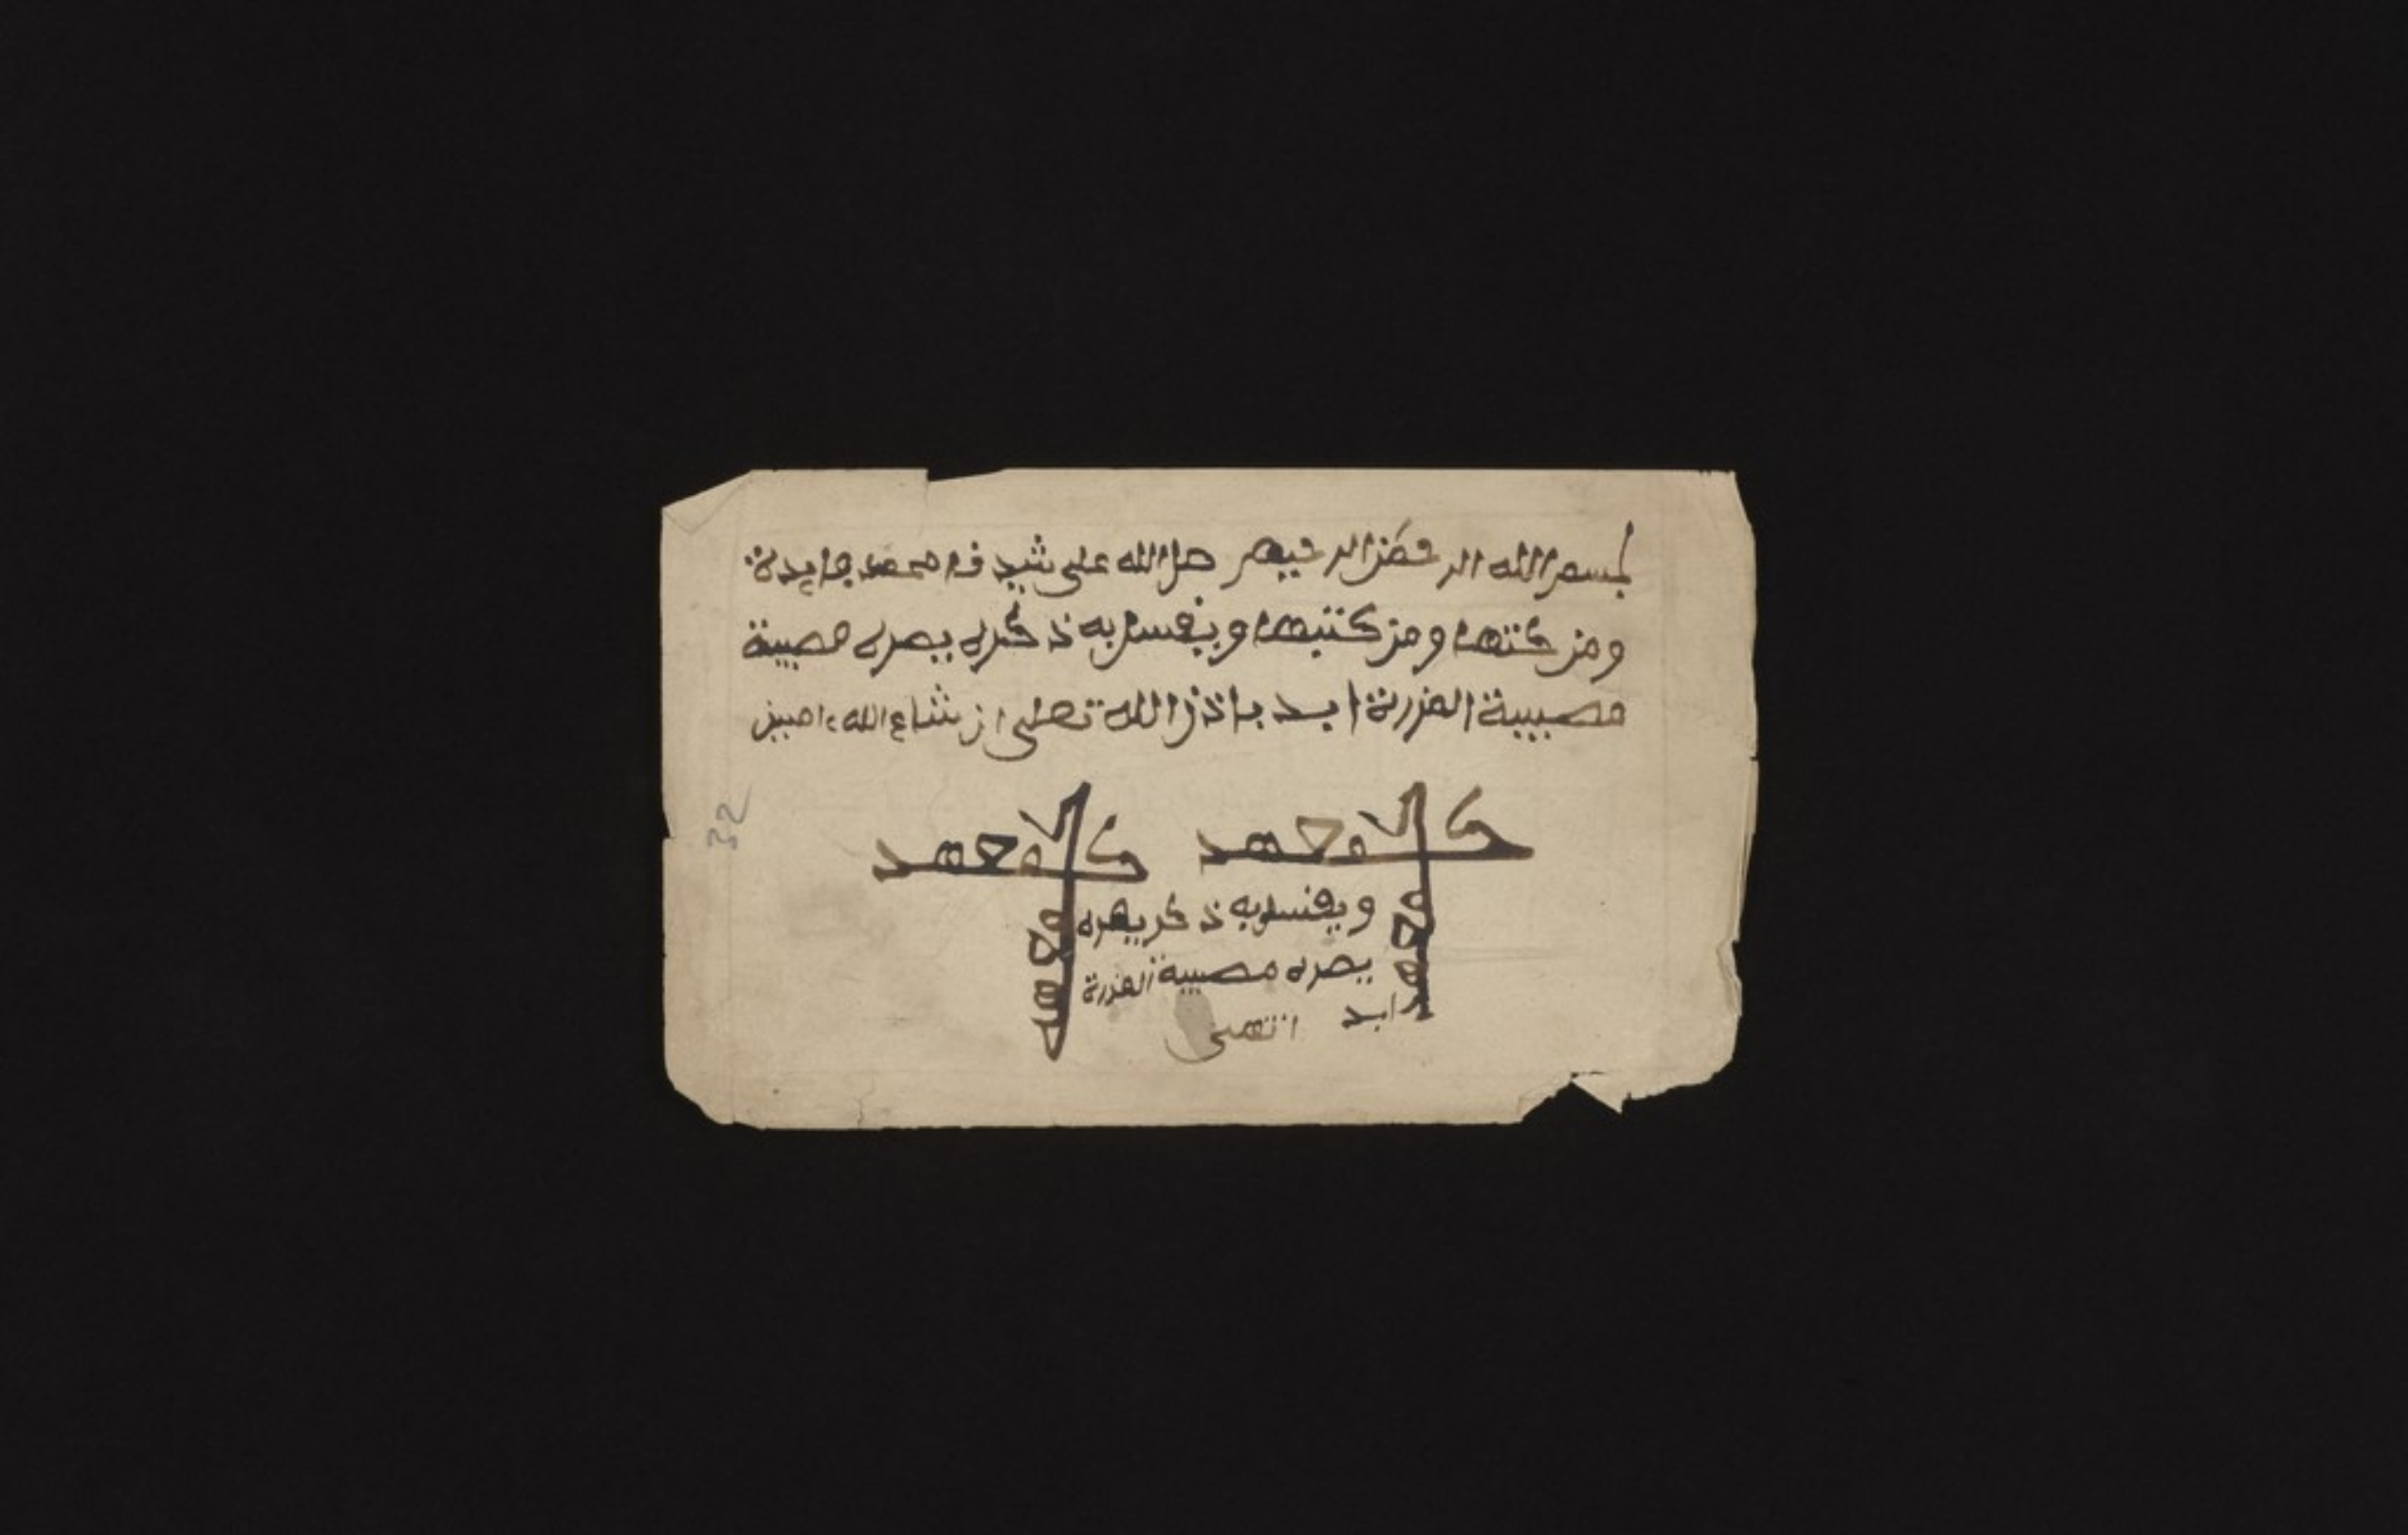 بسم الله الرحمن الرحيم صل الله على شيدنا محمد جايدة
ومن كتها ومن كتبها ويغسل به ذكره يصره مصيبة
مصيبة الضررة ابد باذن الله تعلى ان شاع الله ءامين
كلا محمد كلا محمد
ويغسل به ذكر يضره
يصره مصيبة الضررة
ابد انتهى
32